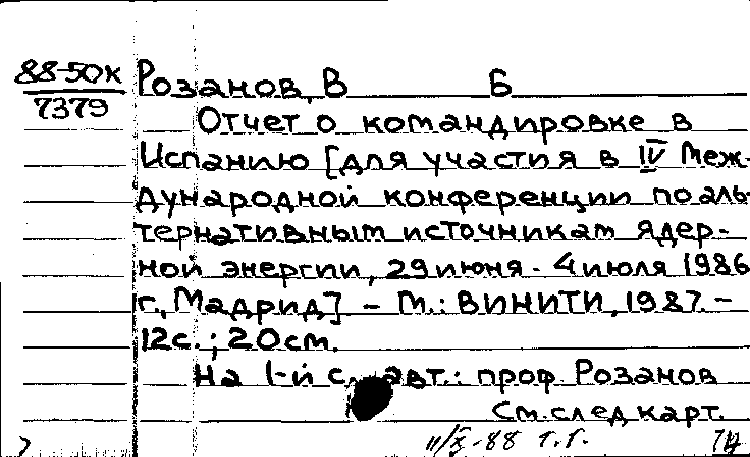 88-50К
7379
Розанов, В Б
Отчет о командировке в
Испанию [для участия в IV Меж-
дународной конференции по аль-
тернативным источникам ядер-
ной энергии, 29 июня - 4 июля 1986
г., Мадрид] - М.: ВИНИТИ, 1987. -
12с.; 20см.
На 1-й с. авт.: проф. Розанов
См. след карт.
11/X-88 т.г.